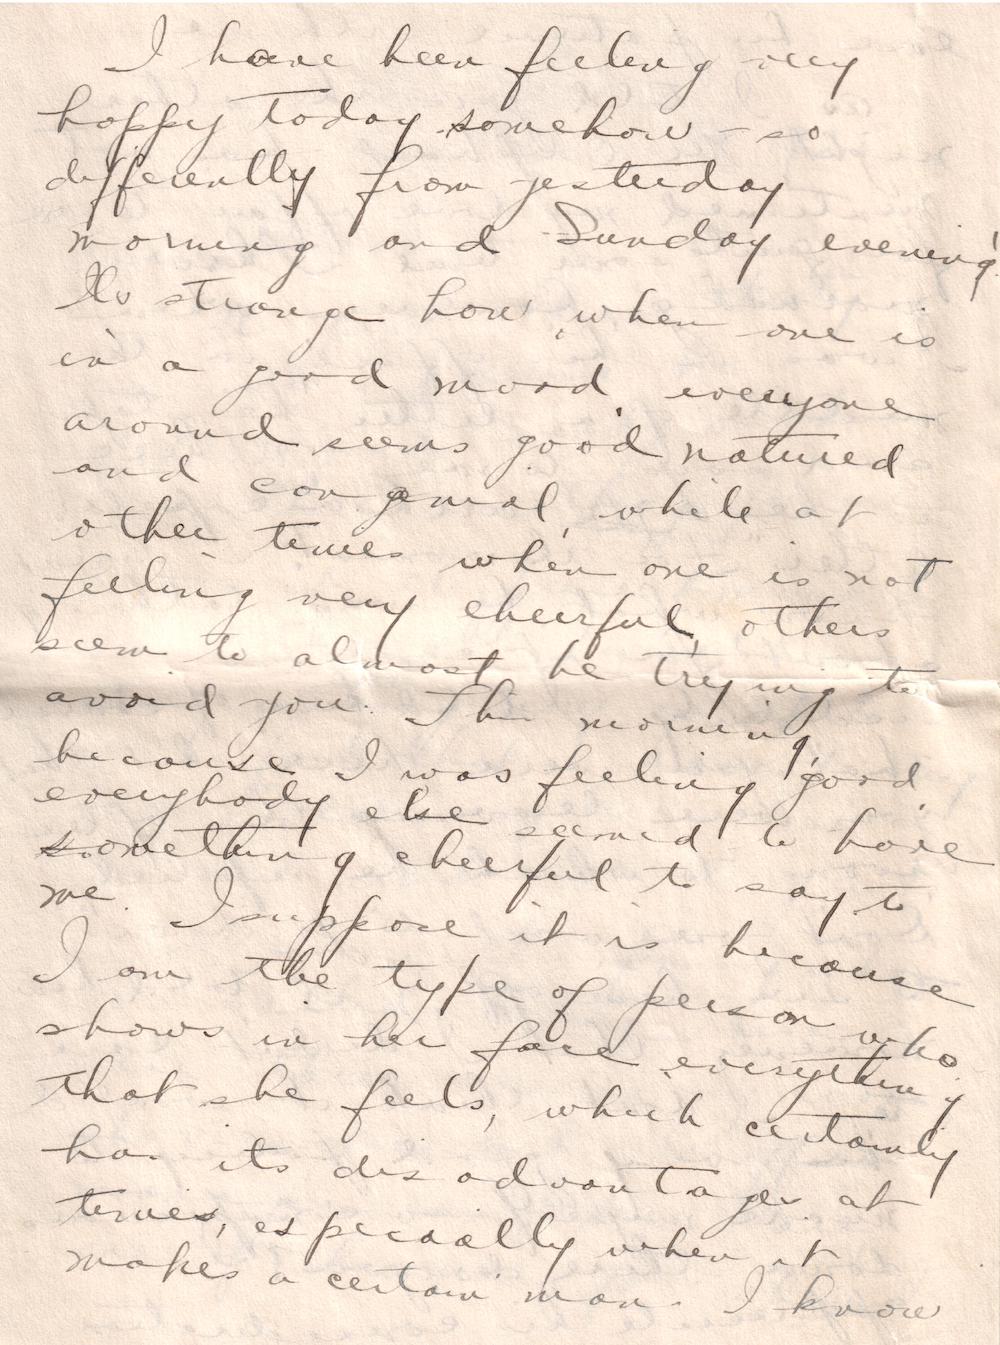 I have been feeling very
happy today somehow – so
differently from yesterday
morning and Sunday evening.
It's strange how, when one is
in a good mood, everyone
around seems good natured
and congenial, while at
other times when one is not
feeling very cheerful, others
seem to almost be trying to
avoid you. This morning,
because I was feeling good,
everybody else seemed to have
something cheerful to say to
me. I suppose it is because
I am the type of person who
shows in her face everything
that she feels, which certainly
has its disadvantages at
times, especially when it
makes a certain man I know